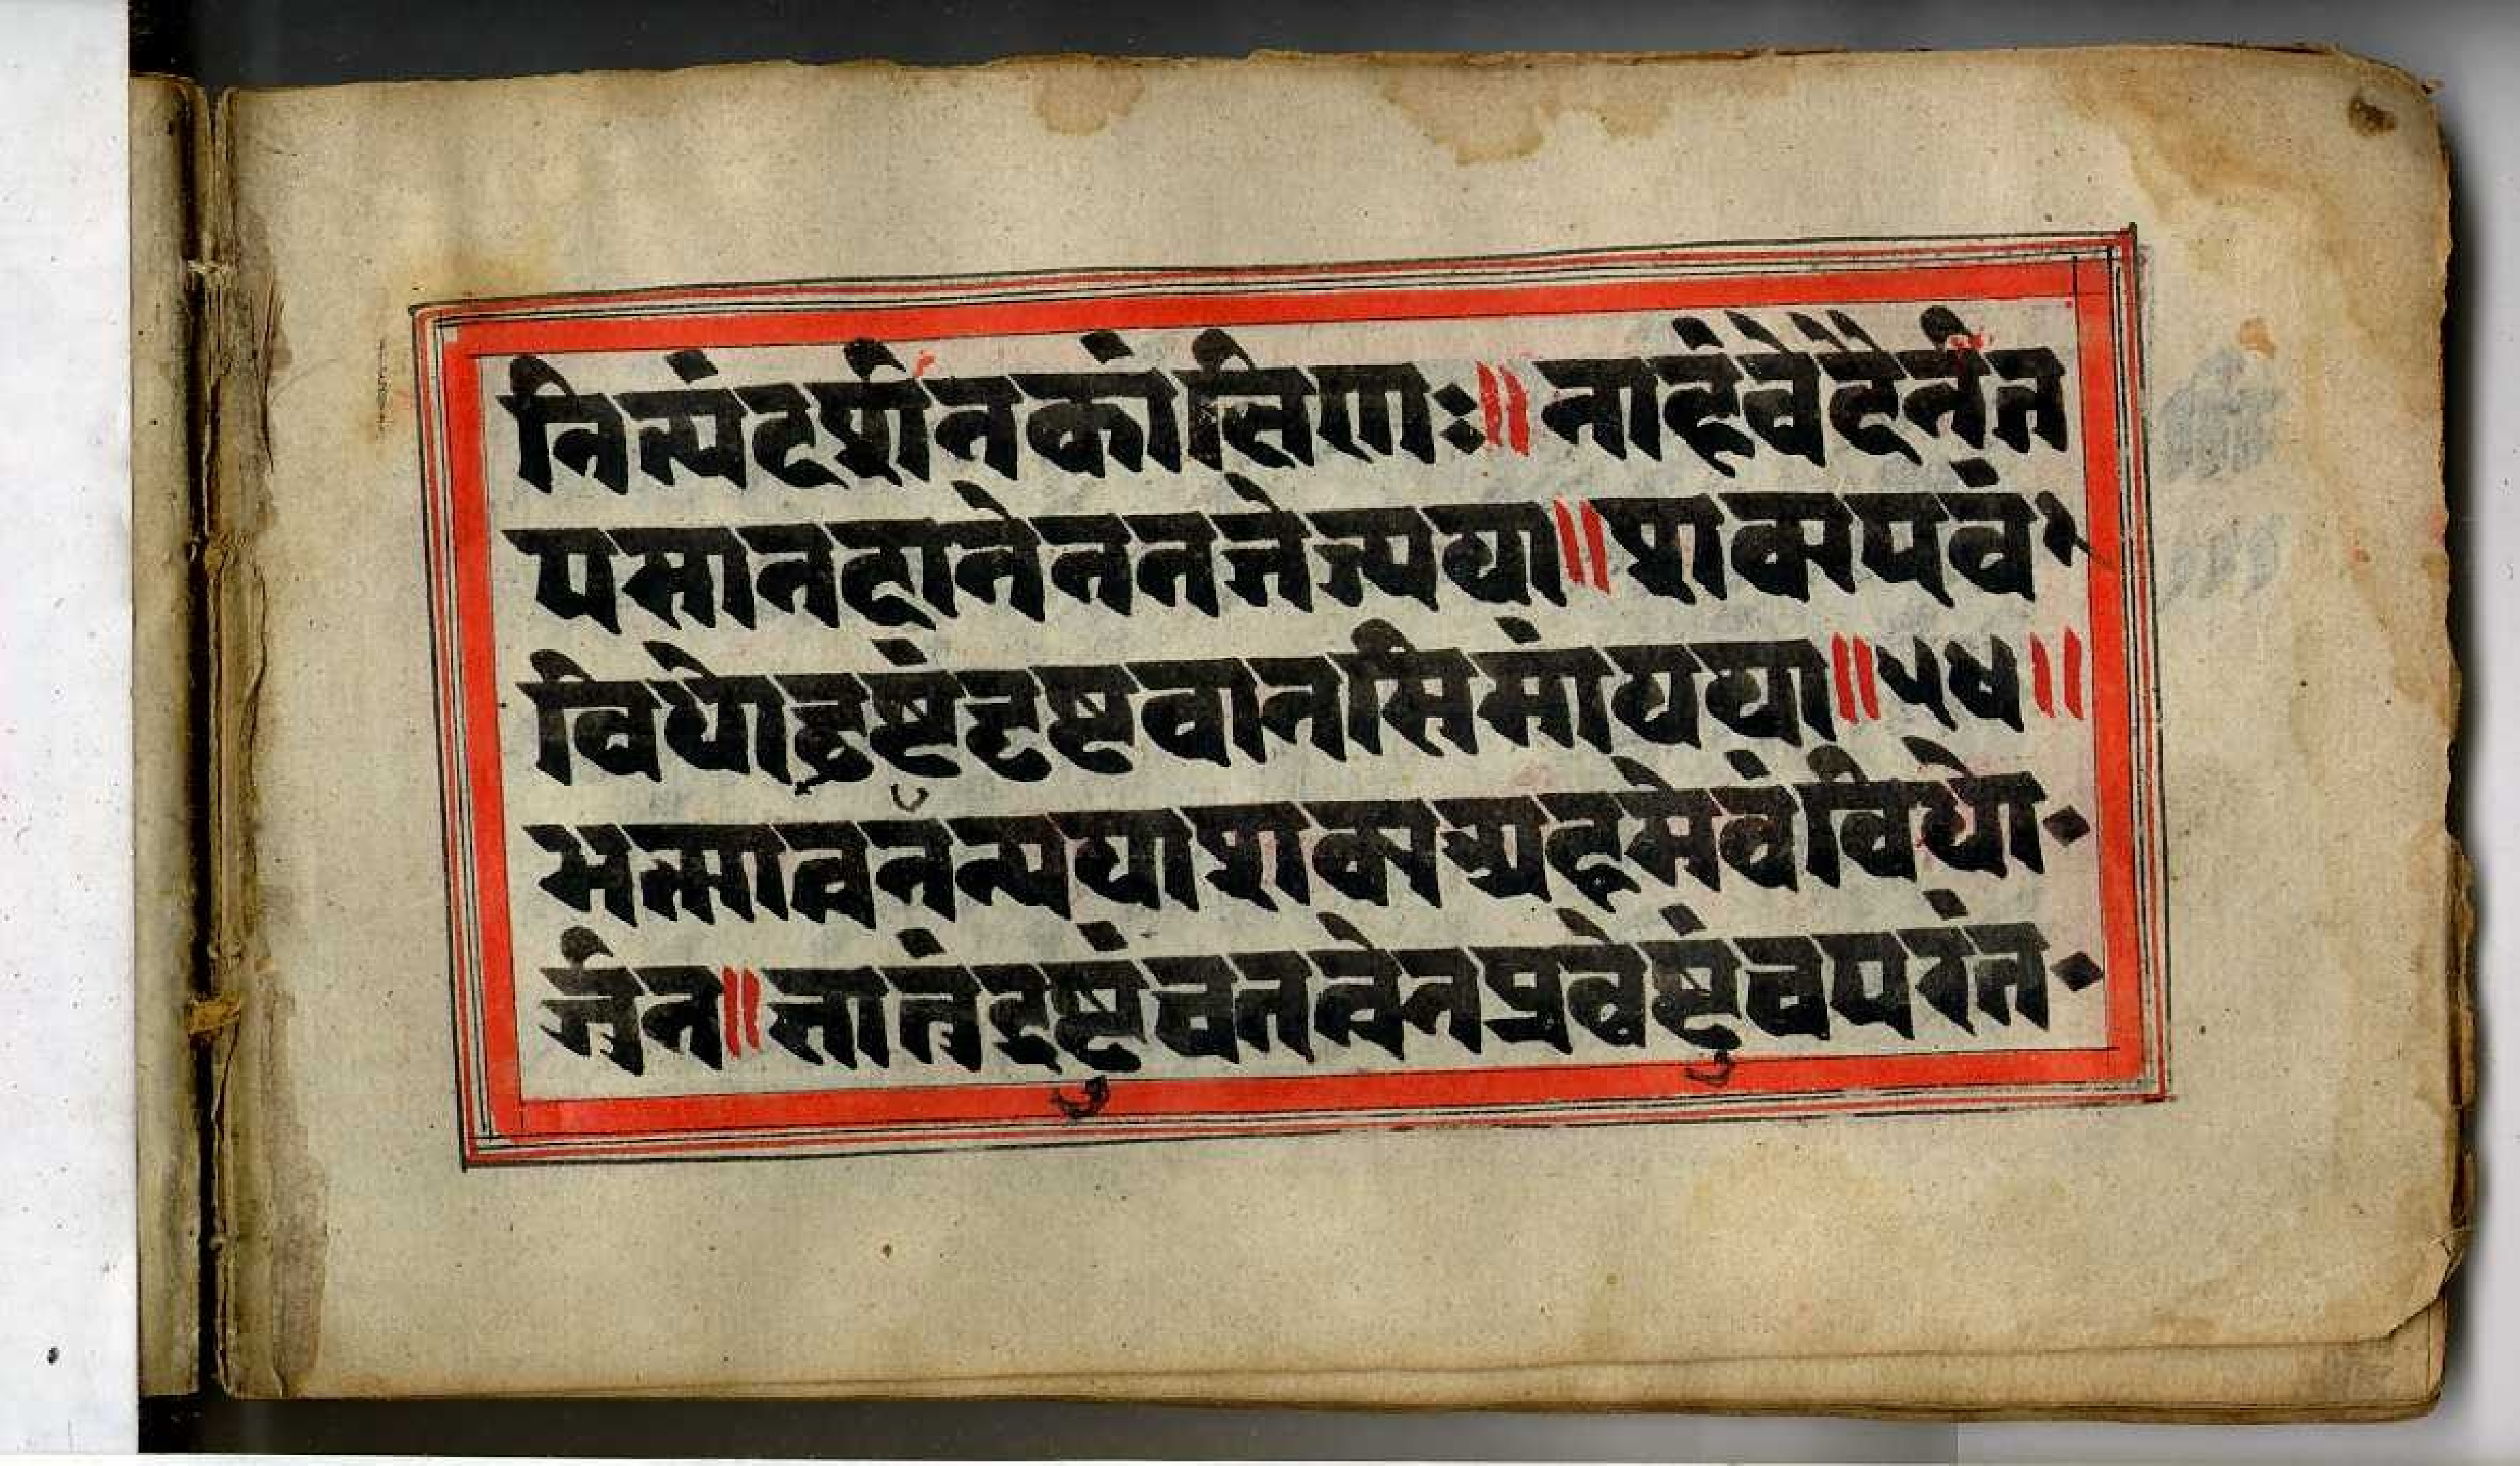 नित्यंदर्शनकांक्षिणः॥नाहंवेदैर्नत
पसानदानेननचेज्यया॥शक्यएवं
विधोद्रष्टुंदृष्टवानसिमांयथा॥५३॥
भक्त्यात्वनन्ययाशक्यअहमेवंविधो
र्जुन॥ज्ञातुंद्रष्टुंचतत्वेनप्रवेष्टुंचपरंत